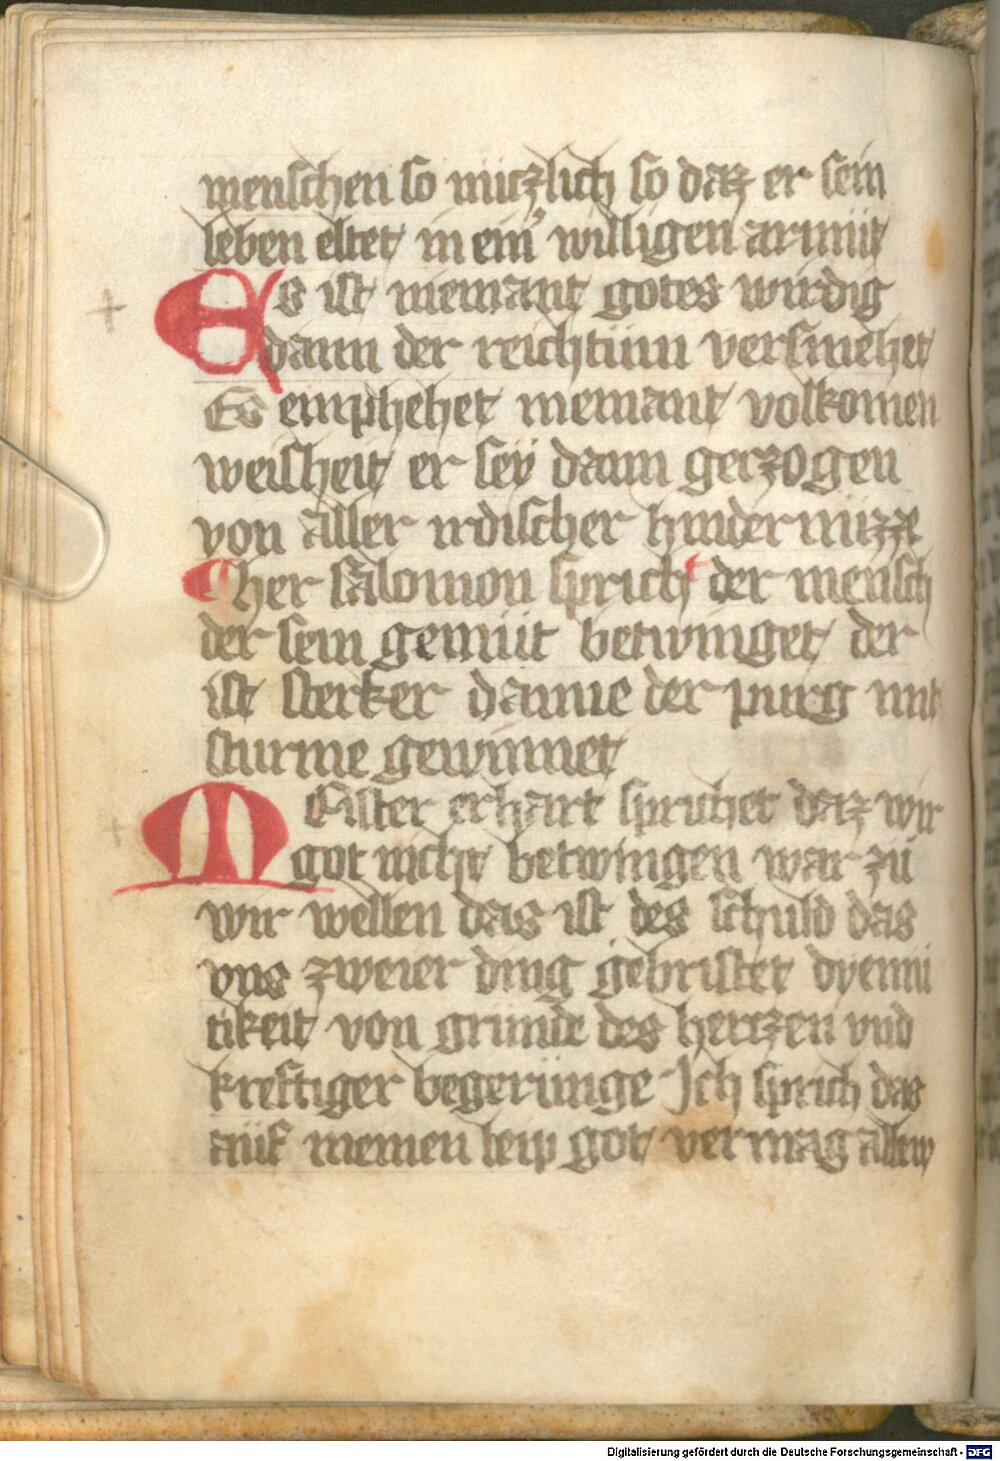 menschen so nüczlich so daz er sein
leben eltet in ein' willigen armüt
Es ist niemant gotes wirdig
dann der reichtüm versmehet
Es emphehet niemant volkomen
weisheit er sey dann gerzogen
von aller irdischer hindernüzze
her salomon spricht der mensch
der sein gemüt betwinget der
ist sterker danne der purg mit
sturme gewinnet
Meister erhart sprichet daz wir
got nicht betwingen war zü
wir wellen das ist des schuld das
vns zweier ding gebristet dyemü
tikeit von grunde des herczen vnd
kreftiger begerünge Ich sprich das
aüf meinen leip got vermag allew
Digitalisierung gefördert durch die Deutsche Forschungsgemeinschaft - DFG